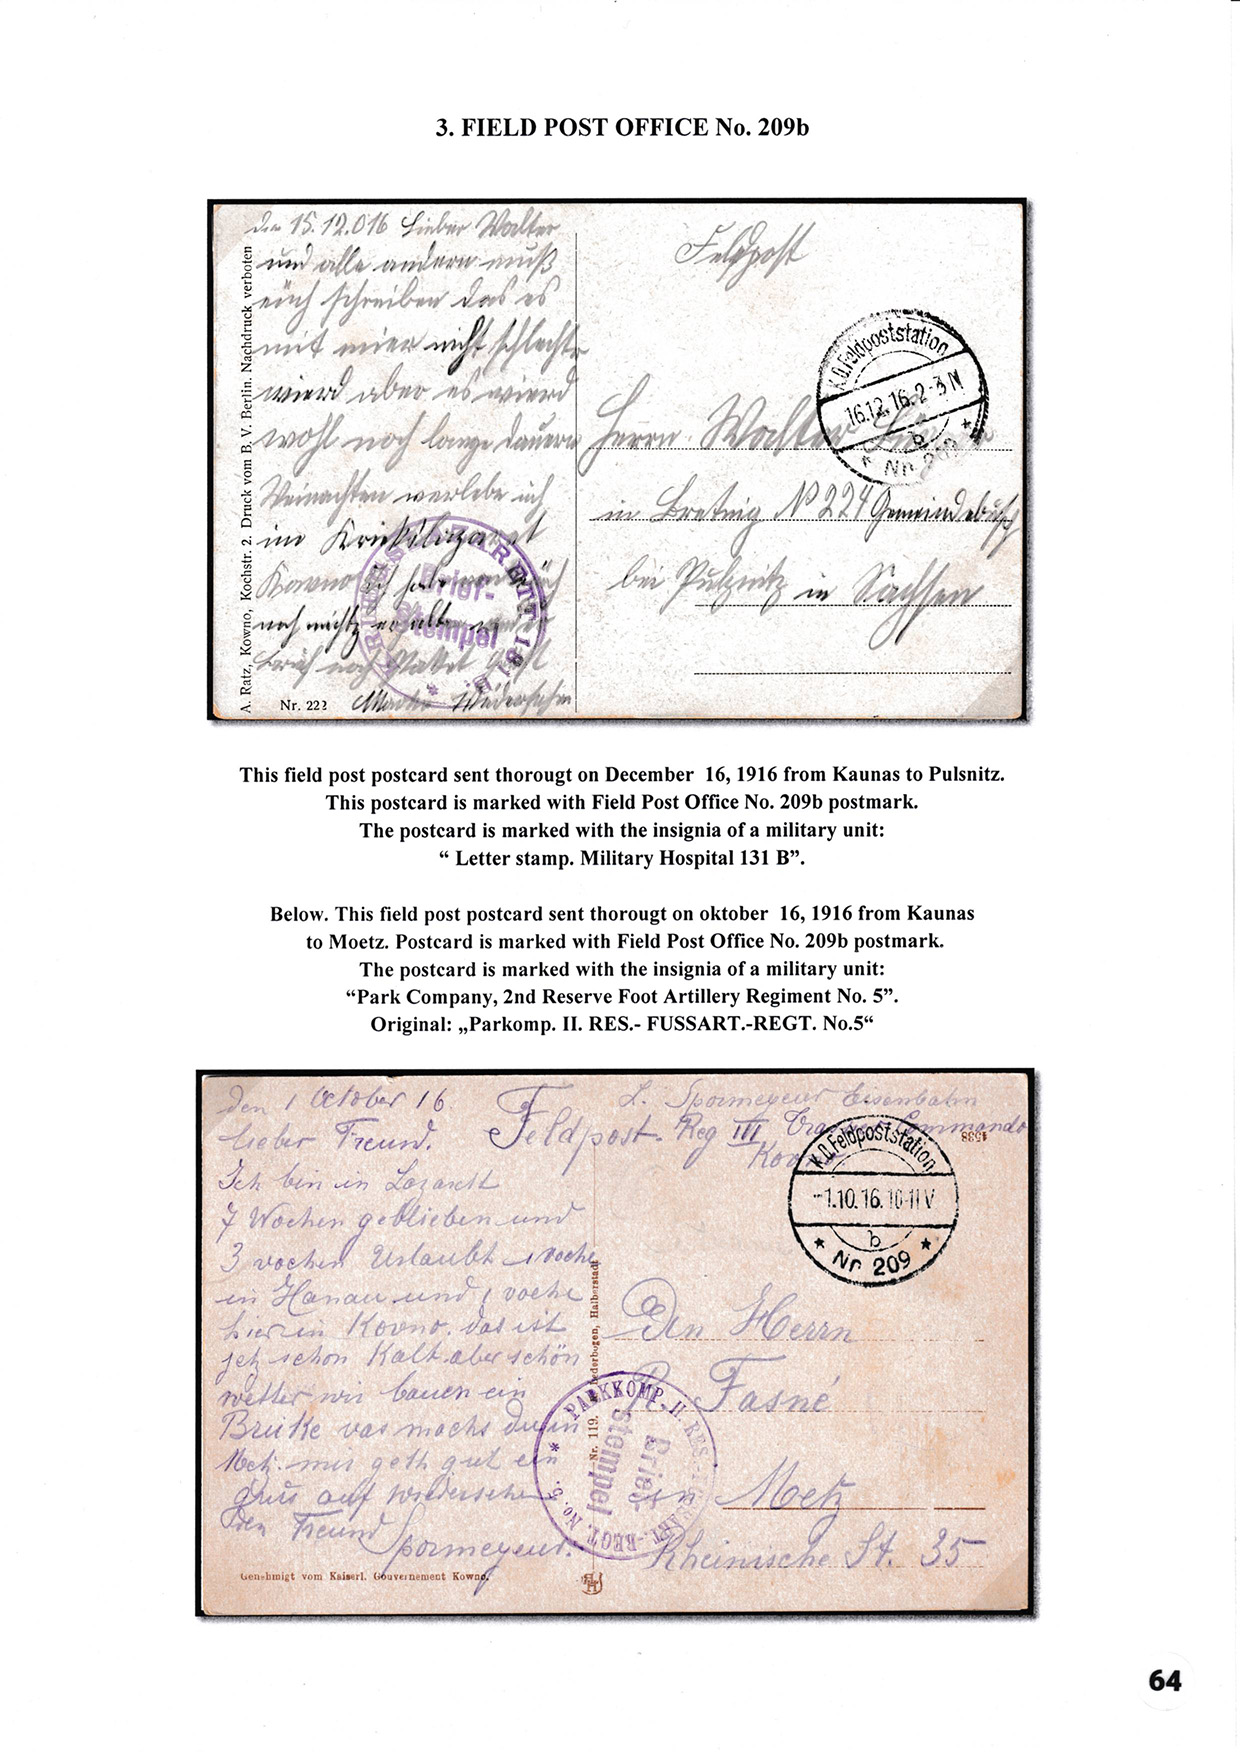 3. FIELD POST OFFICE No. 209b
den 15.12.016 Lieber Walter
und alle andern muß
euch schreiben das es
mit mier nicht schlecht
wierd aber es wierd
wohl noch lange dauern
Weinachten verlebe ich
im Kriekslazaret
Kowno ich habe von euch
noch nichtz erhalten weder
Brief noch Paket
Wiedersehn
A. Ratz, Kowno, Kochstr. 2. Druck vom B. V. Berlin. Nachdruck verboten
Nr. 222
KRIEGSLAZARETT 131 B.
Brief-
Stempel
Feldpost
K.D. Feldpoststation
16.12.16. 2-3 N
b
* Nr. 209 *
Herrn Walter
in Bretnig No 224 Gemeindebusch
bei Pulsnitz in Sachsen
This field post postcard sent thorougt on December 16, 1916 from Kaunas to Pulsnitz.
This postcard is marked with Field Post Office No. 209b postmark.
The postcard is marked with the insignia of a military unit:
“ Letter stamp. Military Hospital 131 B”.
Below. This field post postcard sent thorougt on oktober 16, 1916 from Kaunas
to Moetz. Postcard is marked with Field Post Office No. 209b postmark.
The postcard is marked with the insignia of a military unit:
“Park Company, 2nd Reserve Foot Artillery Regiment No. 5”.
Original: „Parkomp. II. RES.- FUSSART.-REGT. No.5“
den 1 October 16.
lieber Freund.
Ich bin in Lazarett
7 Wochen geblieben und
3 vochen Urlaubt 1 voche
in Hanau und 1 voche
hier in Kovno. das ist
jetz schon Kalt aber schön
wetter wir bauen ein
Brüke vas machs du in
Metz. mir geth gut ein
grus auf wiedersehe
den Freund
Spormeyeur.
Genehmigt vom Kaiserl. Gouvernement Kowno.
Feldpost.
L. Spormeyeur Eisenbahn
Reg III Commando
Kovno
1588
K.D. Feldpoststation
-1.10.16. 10-11 V
b
* Nr. 209 *
Nr. 119. Lederbogen, Halberstadt
PARKKOMP. II. RES.-FUSSART.-REGT. No. 5. *
Brief-
stempel
Den Herrn
R. Fasné
in Metz
Rheinische St. 35
64